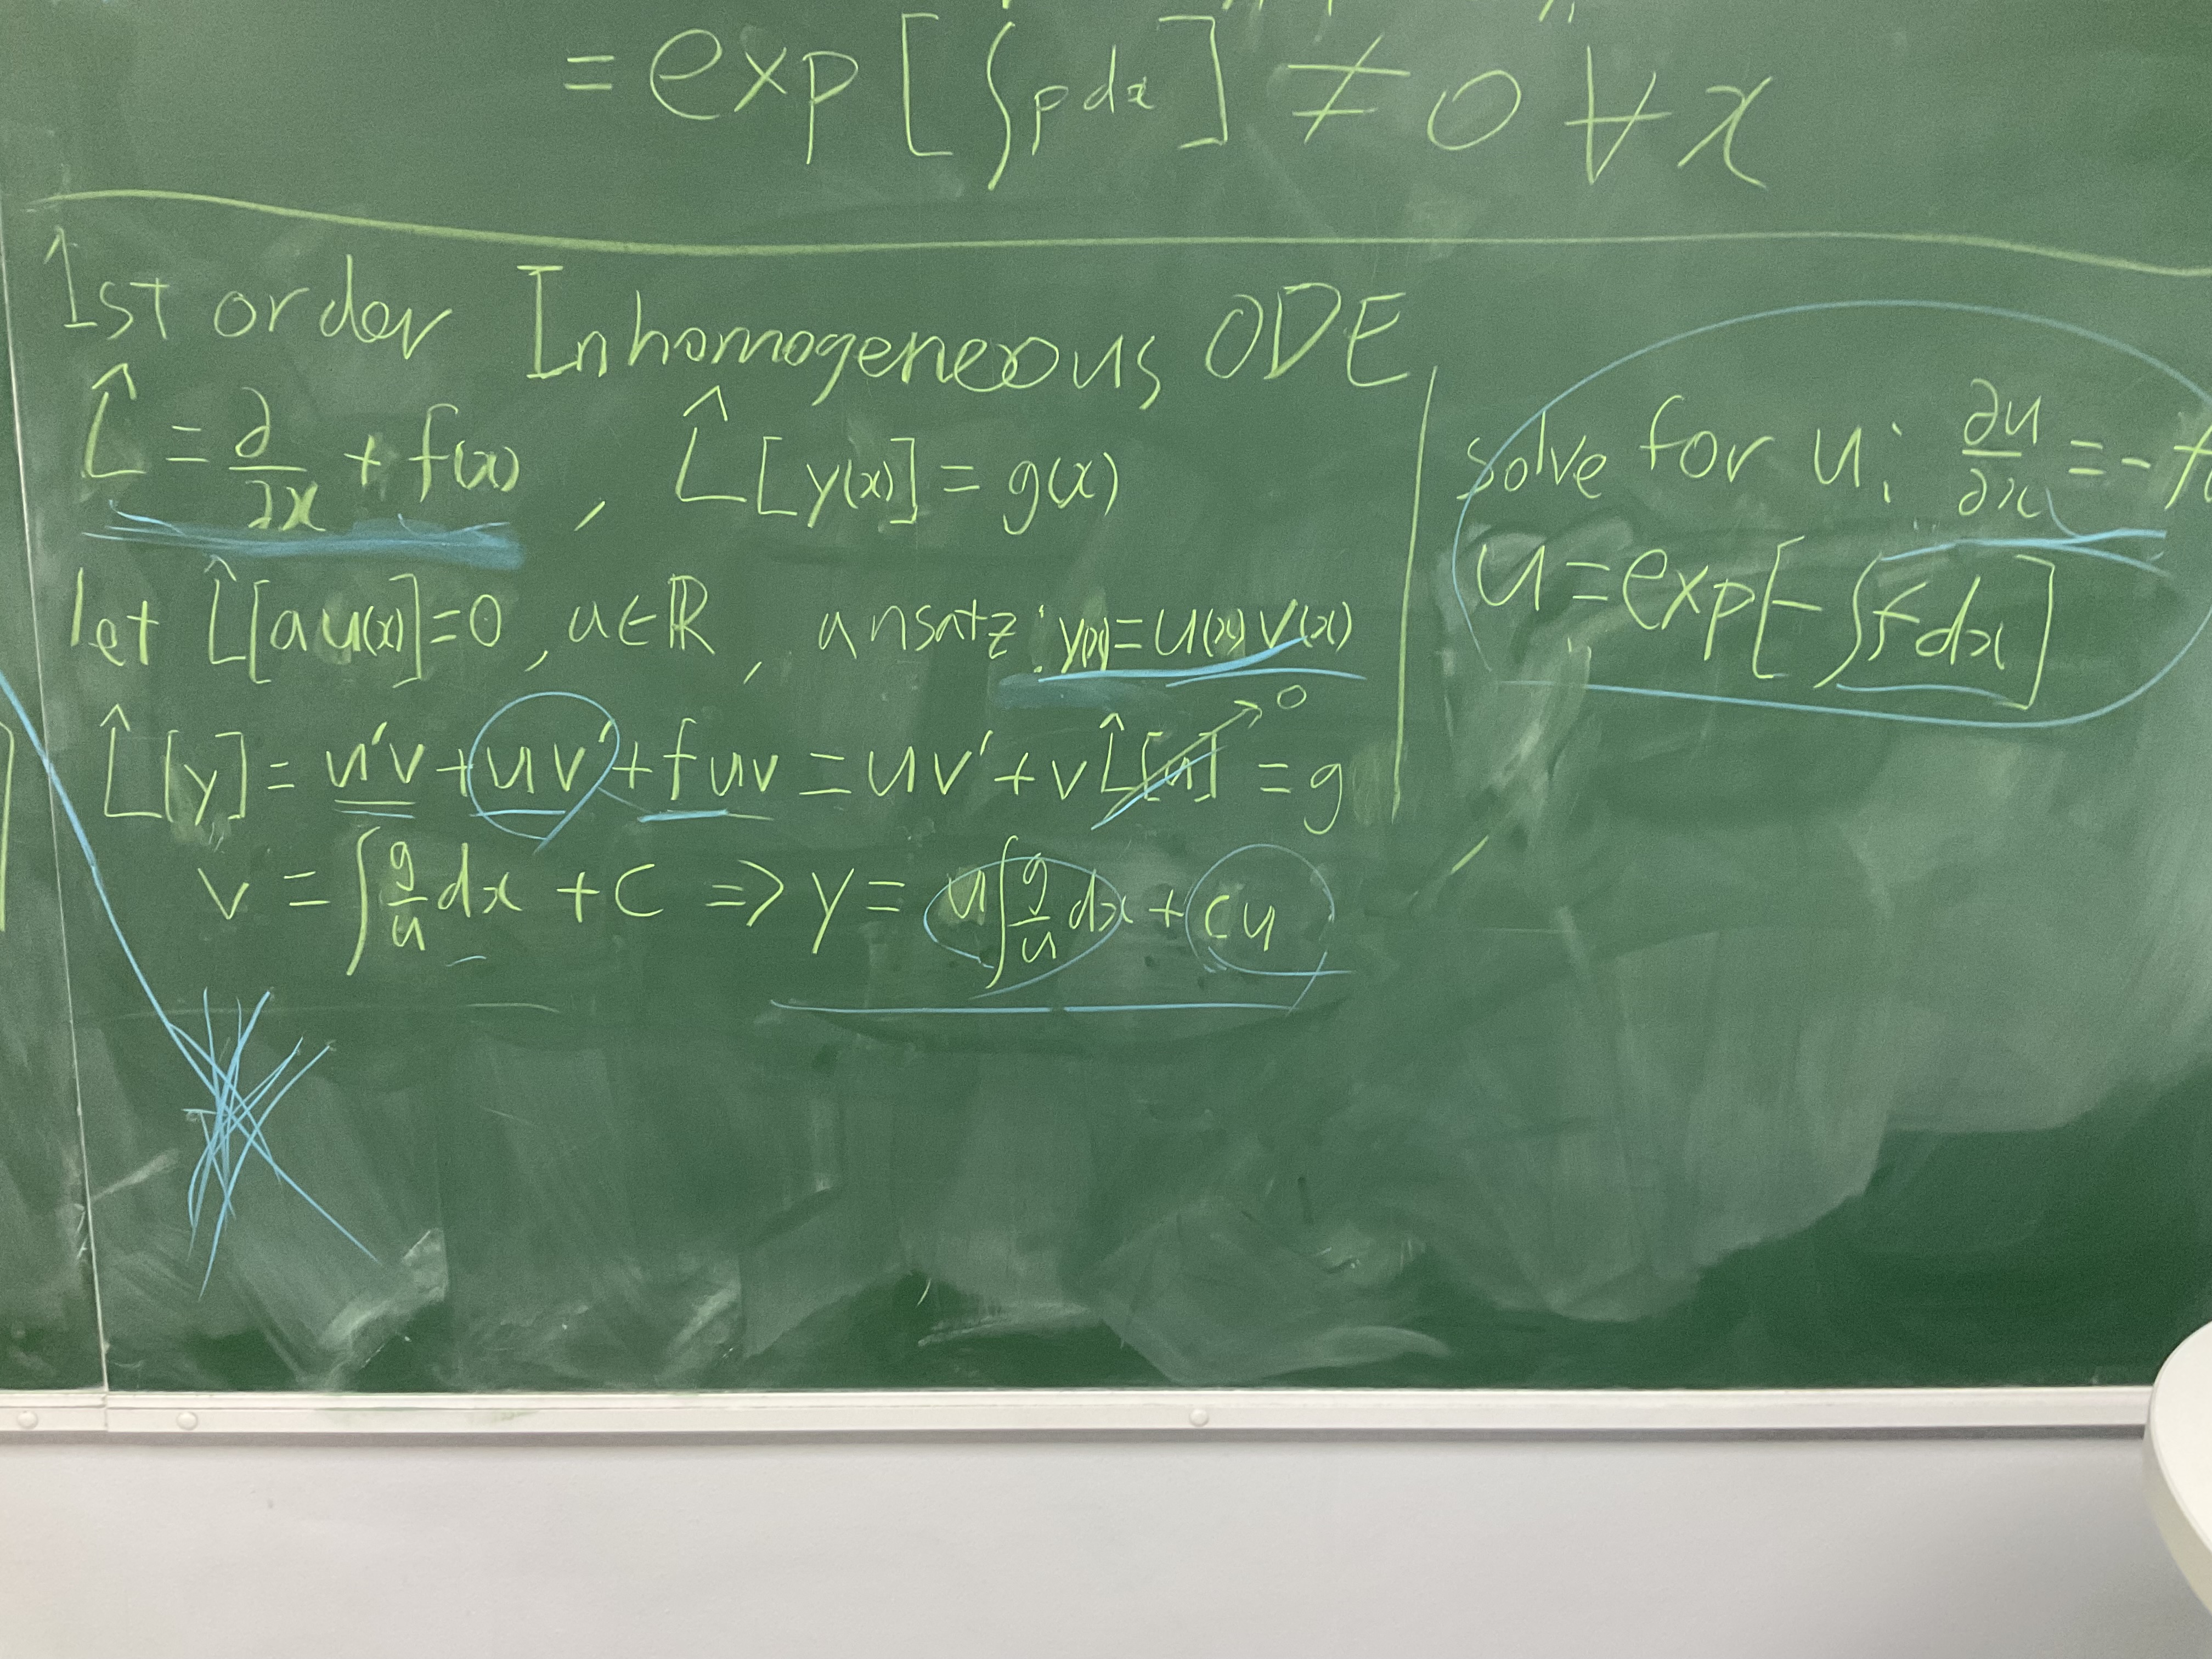 = exp[∫p dx] ≠ 0 ∀ x
1st order Inhomogeneous ODE
L̂ = ∂/∂x + f(x) , L̂[y(x)] = g(x)
let L̂[au(x)]=0 , a∈ℝ , ansatz: y(x)=u(x)v(x)
L̂[y] = u'v + uv' + fuv = uv' + vL̂[u] → 0 = g
v = ∫ g/u dx + c => y = u∫ g/u dx + cu
solve for u: ∂u/∂x = -
u=exp[-∫fdx]